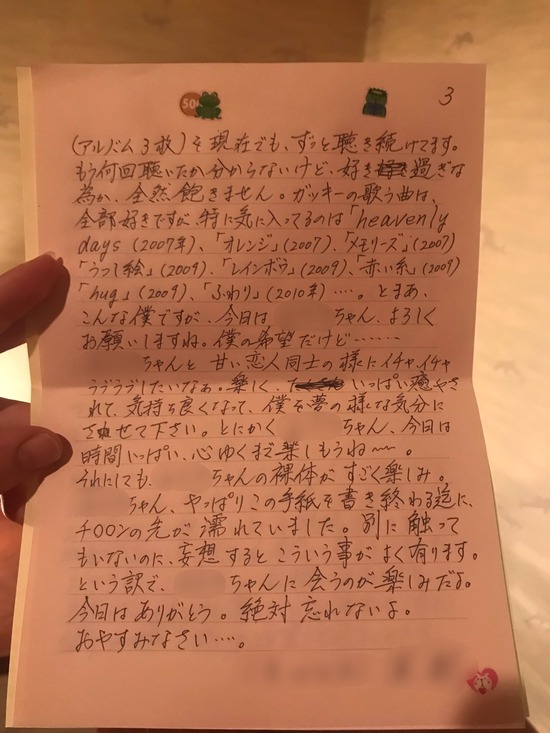 50
3
(アルバム3枚)を現在でも、ずっと聴き続けてます。
もう何回聴いたか分からないけど、好き過ぎな
為か、全然飽きません。ガッキーの歌う曲は、
全部好きですが、特に気に入ってるのは「heavenly
days (2007年)、「オレンジ」(2007)、「メモリーズ」(2007)
「うつし絵」(2009)、「レインボウ」(2009)、「赤い糸」(2009)
「hug」(2009)、「ふわり」(2010年)‥‥。とまあ、
こんな僕ですが、今日は ちゃん、よろしく
お願いしますね。僕の希望だけど‥‥‥
ちゃんと 甘い恋人同士の様にイチャイチャ
ラブラブしたいなぁ。楽しく、いっぱい癒やさ
れて、気持ち良くなって、僕を夢の様な気分に
させて下さい。とにかく ちゃん、今日は
時間いっぱい、心ゆくまで楽しもうね〜。
それにしても、 ちゃんの裸体がすごく楽しみ。
ちゃん、やっぱりこの手紙を書き終わる迄に、
チ〇〇ンの先が濡れていました。別に触って
もいないのに、妄想するとこういう事がよく有ります。
という訳で、 ちゃんに会うのが楽しみだよ。
今日はありがとう。絶対忘れないよ。
おやすみなさい‥‥。